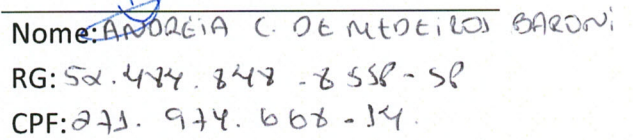 Nome: ANDREIA C. DE MEDEIROS BARONI
RG: 52.474.848-8 SSP-SP
CPF: 271.974.668-14.